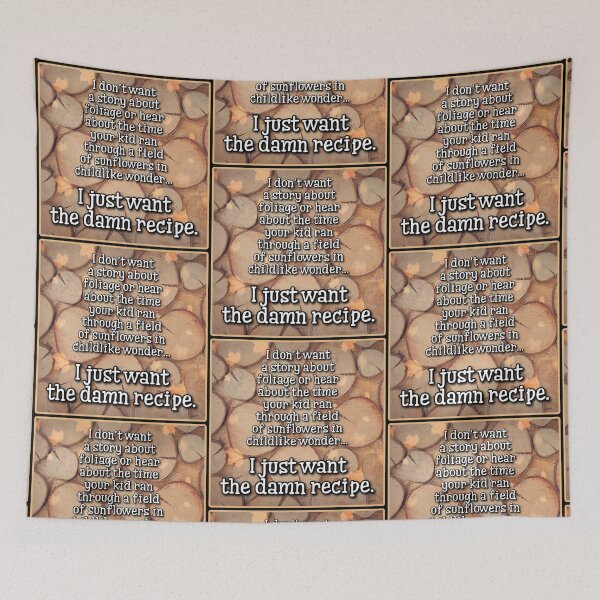 I don't want
a story about
foliage or hear
about the time
your kid ran
through a field
of sunflowers in
childlike wonder...
I just want
the damn recipe.
I don't want
a story about
foliage or hear
about the time
your kid ran
through a field
of sunflowers in
childlike wonder...
I just want
the damn recipe.
I don't want
a story about
foliage or hear
about the time
your kid ran
through a field
of sunflowers in
of sunflowers in
childlike wonder...
I just want
the damn recipe.
I don't want
a story about
foliage or hear
about the time
your kid ran
through a field
of sunflowers in
childlike wonder...
I just want
the damn recipe.
I don't want
a story about
foliage or hear
about the time
your kid ran
through a field
of sunflowers in
childlike wonder...
I just want
the damn recipe.
I don't want
I don't want
a story about
foliage or hear
about the time
your kid ran
through a field
of sunflowers in
childlike wonder...
I just want
the damn recipe.
I don't want
a story about
foliage or hear
about the time
your kid ran
through a field
of sunflowers in
childlike wonder...
I just want
the damn recipe.
I don't want
a story about
foliage or hear
about the time
your kid ran
through a field
of sunflowers in